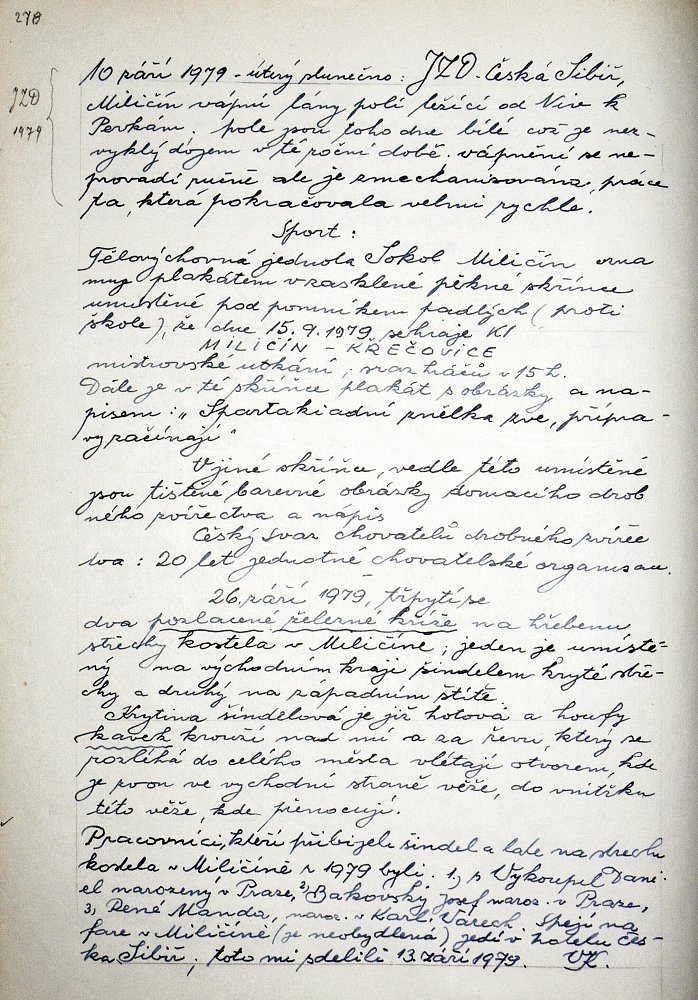 278
JZD
1979
10 září 1979 - úterý slunečno: JZD. Česká Sibiř,
Miličín vápní lány polí ležící od Nive k
Perkám. pole jsou toho dne bílé což je nez-
vyklý dojem v té roční době. vápnění se ne-
provadí ručně ale je zmechanisována práce
ta, která pokračovala velmi rychle.
Sport:
Tělovýchovná jednota Sokol Miličín ozna
muje plakátem v zasklené pěkné skřínce
umístěné pod pomníkem padlých (proti
škole), že dne 15.9.1979 sehraje KI
MILIČÍN - KŘEČOVICE
mistrovské utkání; sraz hráčů v 15 h.
Dále je v té skřínce plakát s obrázky a ná-
pisem: „Spartakiadní znělka zve, přípra-
vy začínají"
V jiné skřínce, vedle této umístěné
jsou tištěné barevné obrázky domacího drob
ného zvířectva a nápis
Český svaz chovatelů drobného zvířec
tva: 20 let jednotné chovatelské organisace.
26. září 1979, třpytí se
dva pozlacené železné kříže na hřebenu
střechy kostela v Miličíně; jeden je umístě-
ný na východním kraji šindelem kryté stře-
chy a druhý na západním štítě.
Krytina šindelová je již hotová a houfy
kavek krouží nad mí a za řevu, který se
rozléhá do celého města vlétají otvorem, kde
je zvon ve vychodní straně věže, do vnitřku
této věže, kde přenocují.
Pracovníci, kteří přibijeli šindel a latě na střechu
kostela v Miličíně r 1979 byli. 1.) p Vykoupil Dani-
el narozený v Praze, 2) Bakovský Josef naroz. v Praze,
3) René Manda, naroz. v Karl. Varech. Spějí na
faře v Miličíně (je neobydlená), jedí v hotelu Čes-
ká Sibiř; toto mi sdělili 13. září 1979. VK.